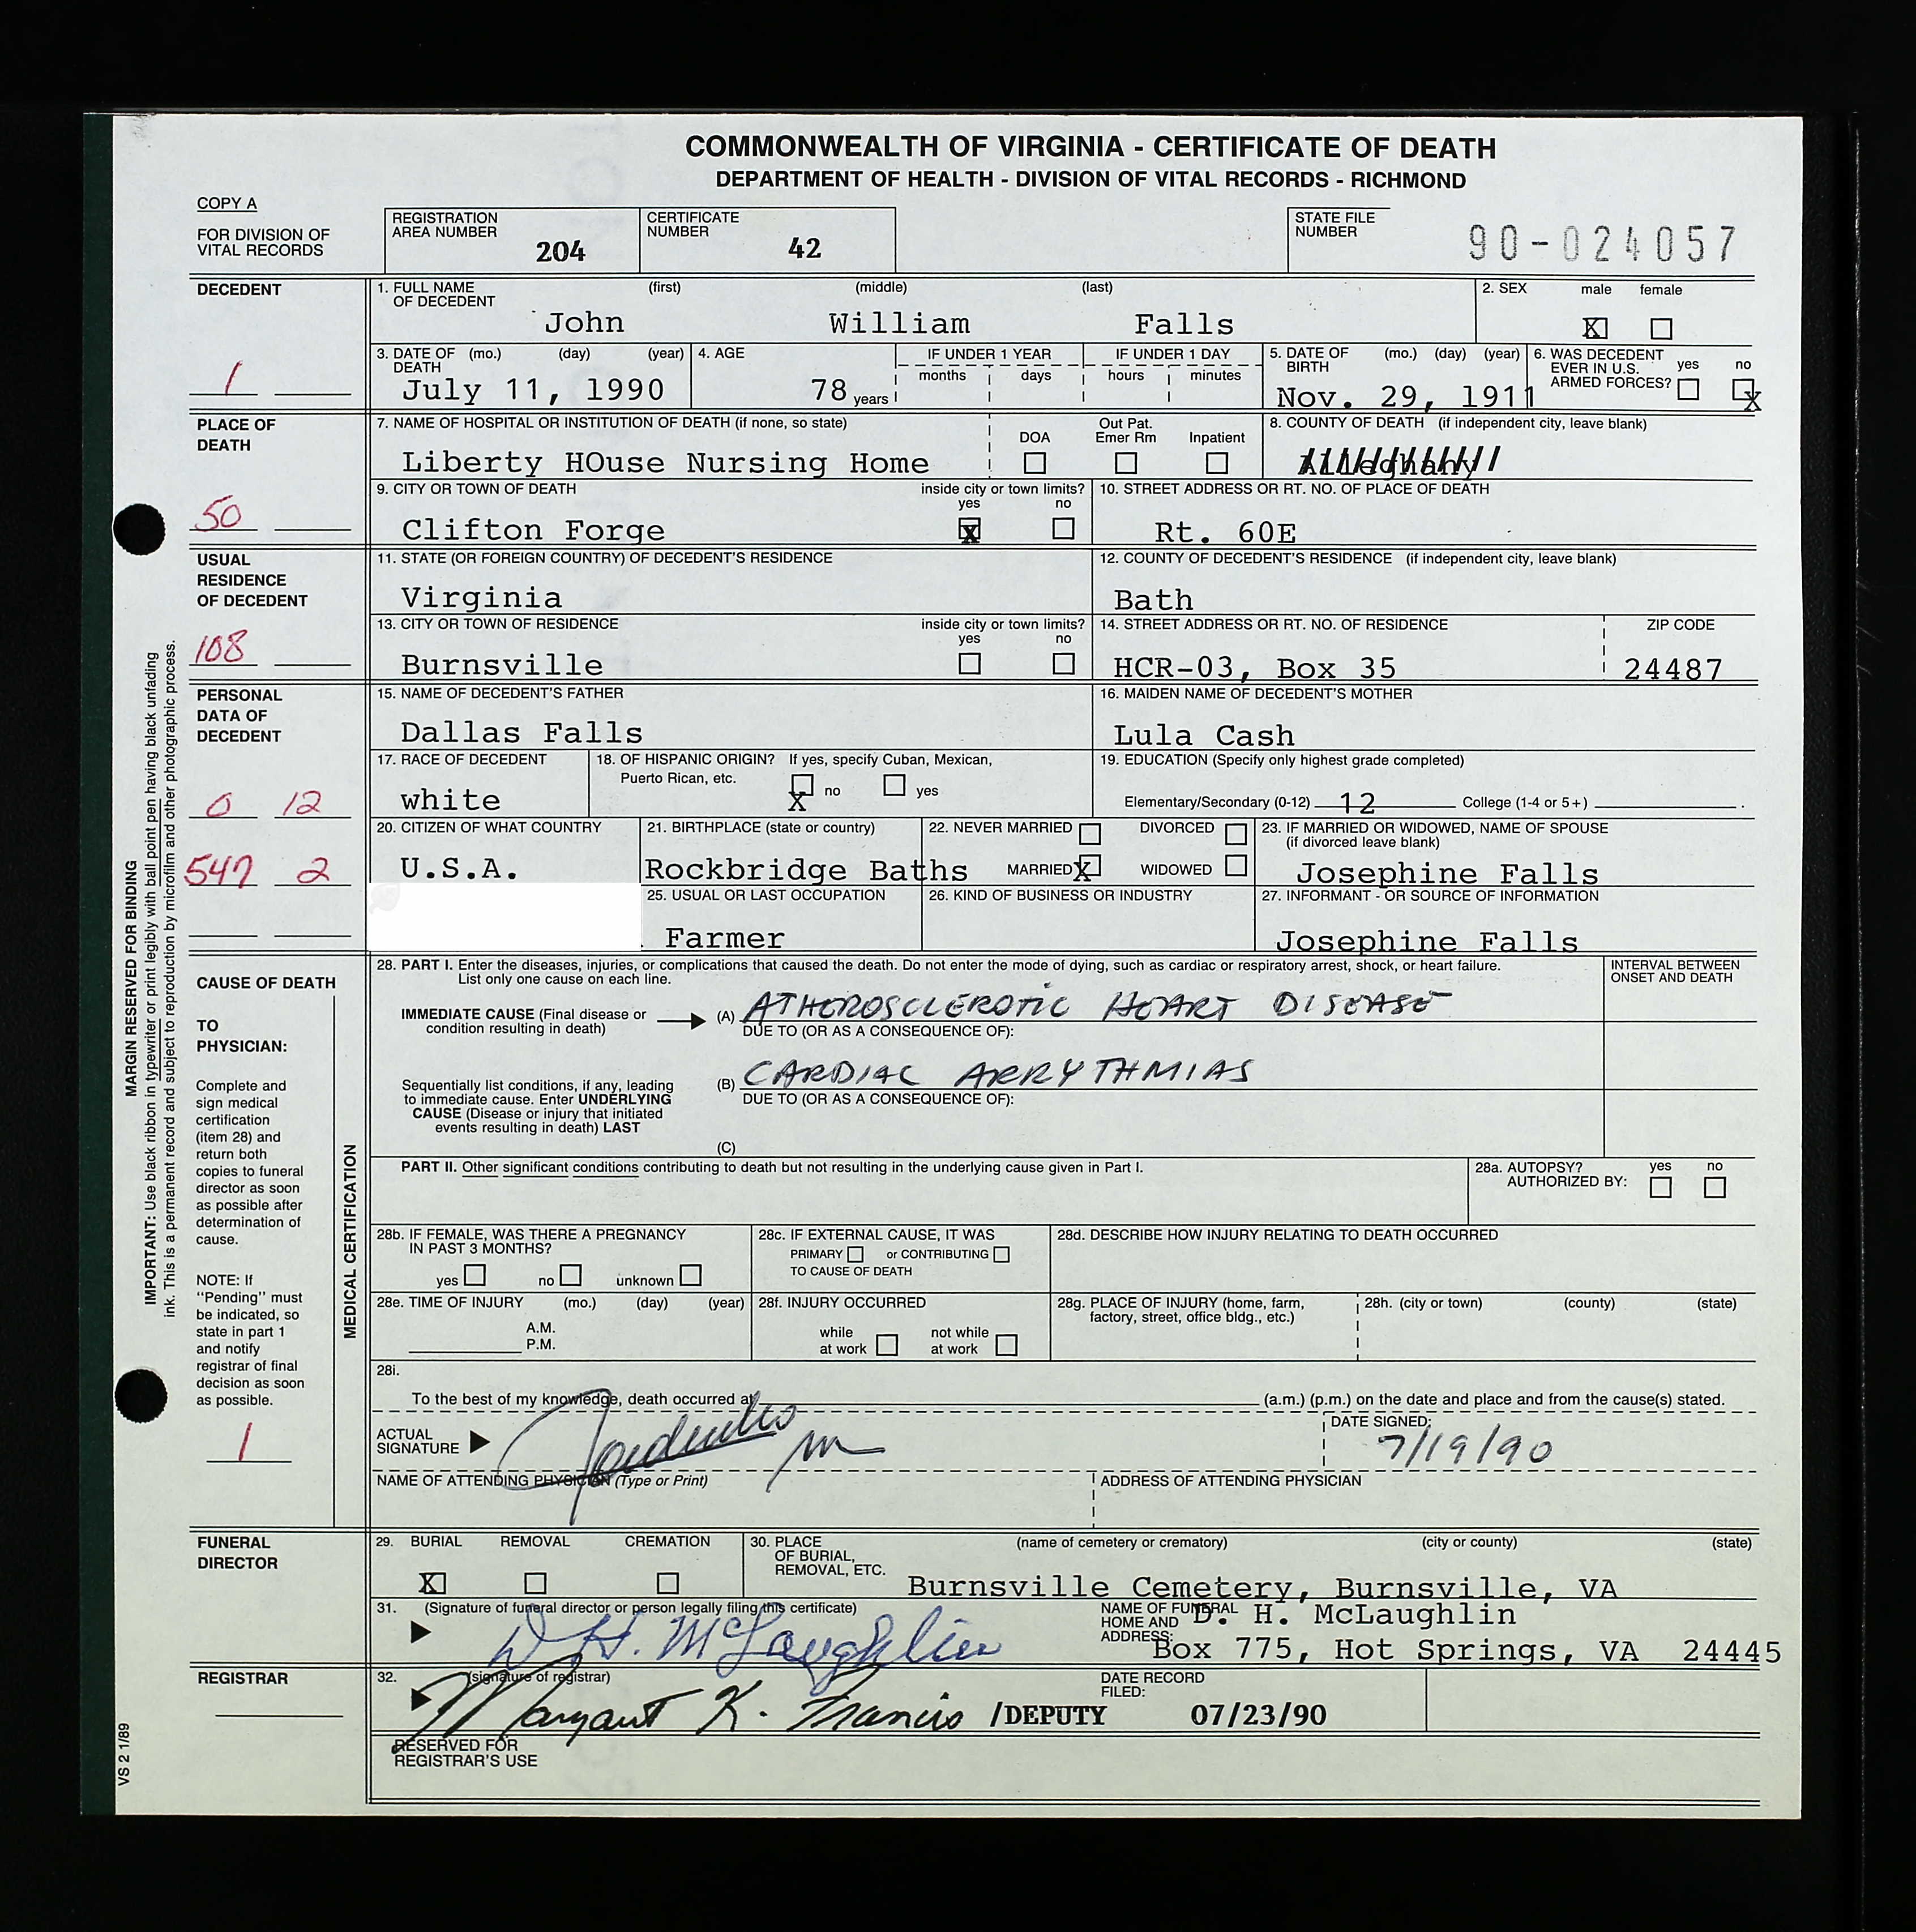 COMMONWEALTH OF VIRGINIA - CERTIFICATE OF DEATH
DEPARTMENT OF HEALTH - DIVISION OF VITAL RECORDS - RICHMOND
COPY A
FOR DIVISION OF
VITAL RECORDS
REGISTRATION
AREA NUMBER
204
CERTIFICATE
NUMBER
42
STATE FILE
NUMBER
90-024057
DECEDENT
1
1. FULL NAME
OF DECEDENT
(first) (middle) (last)
John William Falls
2. SEX male female
X
3. DATE OF DEATH (mo.) (day) (year)
July 11, 1990
4. AGE
78 years
IF UNDER 1 YEAR
months days
IF UNDER 1 DAY
hours minutes
5. DATE OF BIRTH (mo.) (day) (year)
Nov. 29, 1911
6. WAS DECEDENT
EVER IN U.S.
ARMED FORCES?
yes no
X
PLACE OF
DEATH
50
7. NAME OF HOSPITAL OR INSTITUTION OF DEATH (if none, so state)
Liberty HOuse Nursing Home
DOA
Out Pat.
Emer Rm
Inpatient
8. COUNTY OF DEATH (if independent city, leave blank)
Alleghany
9. CITY OR TOWN OF DEATH
Clifton Forge
inside city or town limits?
yes no
X
10. STREET ADDRESS OR RT. NO. OF PLACE OF DEATH
Rt. 60E
USUAL
RESIDENCE
OF DECEDENT
108
11. STATE (OR FOREIGN COUNTRY) OF DECEDENT'S RESIDENCE
Virginia
12. COUNTY OF DECEDENT'S RESIDENCE (if independent city, leave blank)
Bath
13. CITY OR TOWN OF RESIDENCE
Burnsville
inside city or town limits?
yes no
14. STREET ADDRESS OR RT. NO. OF RESIDENCE
HCR-03, Box 35
ZIP CODE
24487
PERSONAL
DATA OF
DECEDENT
0 12
547 2
15. NAME OF DECEDENT'S FATHER
Dallas Falls
16. MAIDEN NAME OF DECEDENT'S MOTHER
Lula Cash
17. RACE OF DECEDENT
white
18. OF HISPANIC ORIGIN? If yes, specify Cuban, Mexican,
Puerto Rican, etc.
X no yes
19. EDUCATION (Specify only highest grade completed)
Elementary/Secondary (0-12) 12 College (1-4 or 5+)
20. CITIZEN OF WHAT COUNTRY
U.S.A.
21. BIRTHPLACE (state or country)
Rockbridge Baths
22. NEVER MARRIED DIVORCED
MARRIED X WIDOWED
23. IF MARRIED OR WIDOWED, NAME OF SPOUSE
(if divorced leave blank)
Josephine Falls
25. USUAL OR LAST OCCUPATION
Farmer
26. KIND OF BUSINESS OR INDUSTRY
27. INFORMANT - OR SOURCE OF INFORMATION
Josephine Falls
CAUSE OF DEATH
TO
PHYSICIAN:
Complete and
sign medical
certification
(item 28) and
return both
copies to funeral
director as soon
as possible after
determination of
cause.
NOTE: If
"Pending" must
be indicated, so
state in part 1
and notify
registrar of final
decision as soon
as possible.
1
MEDICAL CERTIFICATION
28. PART I. Enter the diseases, injuries, or complications that caused the death. Do not enter the mode of dying, such as cardiac or respiratory arrest, shock, or heart failure.
List only one cause on each line.
INTERVAL BETWEEN
ONSET AND DEATH
IMMEDIATE CAUSE (Final disease or
condition resulting in death)
(A) ATHEROSCLEROTIC HEART DISEASE
DUE TO (OR AS A CONSEQUENCE OF):
(B) CARDIAC ARRYTHMIAS
DUE TO (OR AS A CONSEQUENCE OF):
Sequentially list conditions, if any, leading
to immediate cause. Enter UNDERLYING
CAUSE (Disease or injury that initiated
events resulting in death) LAST
(C)
PART II. Other significant conditions contributing to death but not resulting in the underlying cause given in Part I.
28a. AUTOPSY? yes no
AUTHORIZED BY:
28b. IF FEMALE, WAS THERE A PREGNANCY
IN PAST 3 MONTHS?
yes no unknown
28c. IF EXTERNAL CAUSE, IT WAS
PRIMARY or CONTRIBUTING
TO CAUSE OF DEATH
28d. DESCRIBE HOW INJURY RELATING TO DEATH OCCURRED
28e. TIME OF INJURY (mo.) (day) (year)
A.M.
P.M.
28f. INJURY OCCURRED
while
at work
not while
at work
28g. PLACE OF INJURY (home, farm,
factory, street, office bldg., etc.)
28h. (city or town) (county) (state)
28i.
To the best of my knowledge, death occurred at (a.m.) (p.m.) on the date and place and from the cause(s) stated.
ACTUAL
SIGNATURE
DATE SIGNED:
7/19/90
NAME OF ATTENDING PHYSICIAN (Type or Print)
ADDRESS OF ATTENDING PHYSICIAN
FUNERAL
DIRECTOR
29. BURIAL REMOVAL CREMATION
X
30. PLACE
OF BURIAL,
REMOVAL, ETC.
(name of cemetery or crematory) (city or county) (state)
Burnsville Cemetery, Burnsville, VA
31. (Signature of funeral director or person legally filing this certificate)
D. H. McLaughlin
NAME OF FUNERAL
HOME AND
ADDRESS:
D. H. McLaughlin
Box 775, Hot Springs, VA 24445
REGISTRAR
32. (signature of registrar)
Margaret K. Francis /DEPUTY
DATE RECORD
FILED:
07/23/90
RESERVED FOR
REGISTRAR'S USE
MARGIN RESERVED FOR BINDING
IMPORTANT: Use black ribbon in typewriter or print legibly with ball point pen having black unfading
ink. This is a permanent record and subject to reproduction by microfilm and other photographic process.
VS 2 1/89